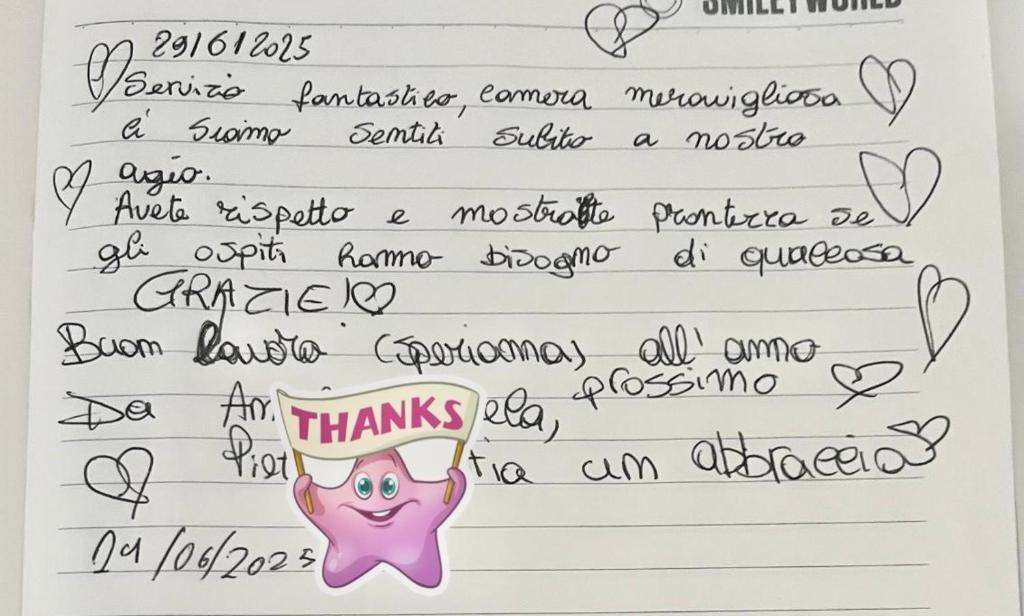 SMILEYWORLD
29/6/2025
Servizio fantastico, camera meravigliosa
ci siamo sentiti subito a nostro
agio.
Avete rispetto e mostrate prontezza se
gli ospiti hanno bisogno di qualcosa
GRAZIE!
Buon lavoro (speriamo) all'anno
prossimo
Da
THANKS
un abbraccio
/06/2025